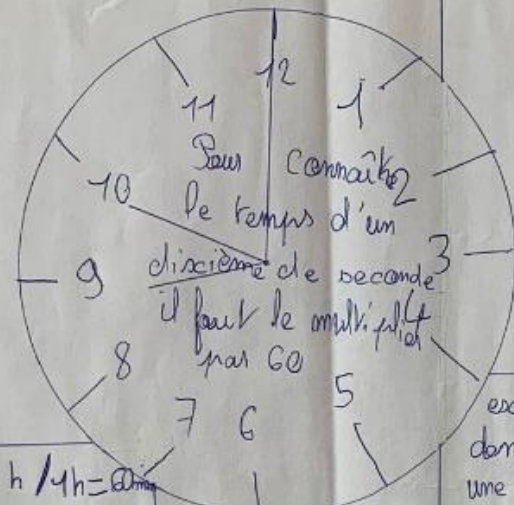 12
11
1
Pour connaître
10
2
le temps d'un
3
9
dixième de seconde
4
il faut le multiplier
8
par 60
5
7
6
h / 1h = 60min
dan
une